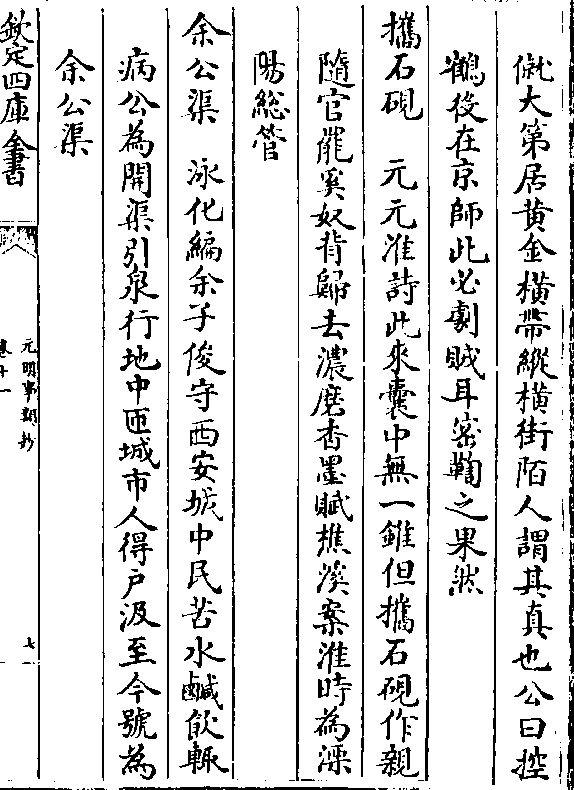 僦大第居黄金橫帶縱橫街陌人謂其真也公曰控
鶴役在京師此必劇賊耳宻鞫之果然
攜石硯　元元淮詩此來囊中無一錐但攜石硯作親
隨官罷奚奴背歸去濃磨香墨賦樵溪案淮時為溧
陽總管
余公渠　泳化編余子俊守西安城中民苦水鹹飲輙
病公為開渠引泉行地中匝城市人得戶汲至今號為
余公渠
欽定四庫全書
元明事類鈔
卷十一
七